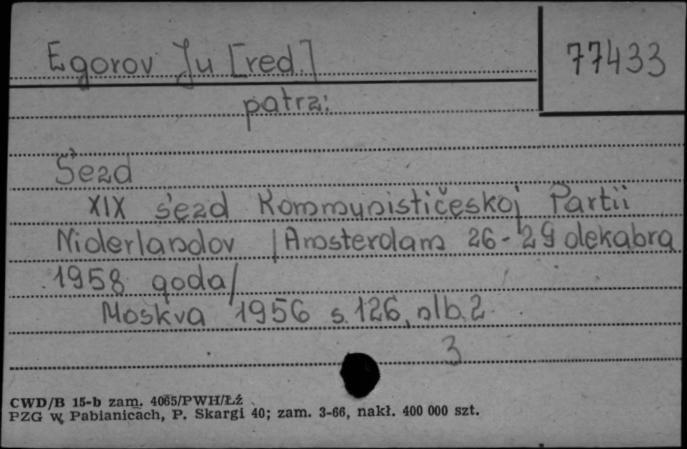 Egorov Ju [red.]
77433
patrz:
S'ezd
XIX s'ezd Kommunističeskoj Partii
Niderlandov /Amsterdam 26-29 dekabra
1958 goda/
Moskva 1956 s. 126, nlb. 2
3
CWD/B 15-b zam. 4065/PWH/Łź
PZG w Pabianicach, P. Skargi 40; zam. 3-66, nakł. 400 000 szt.